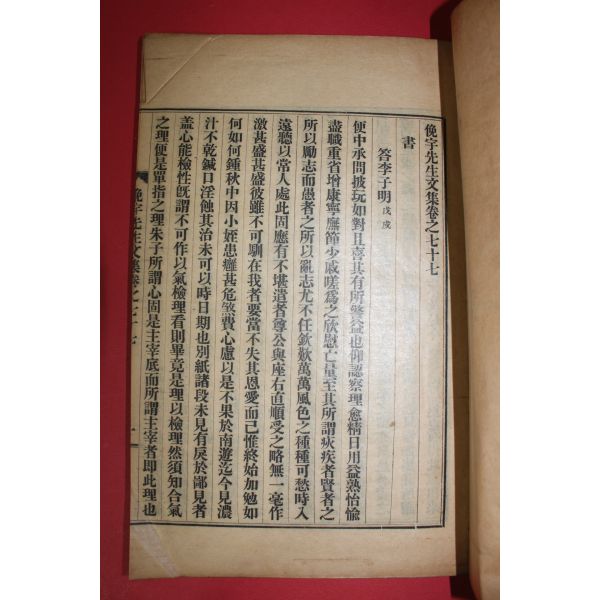 俛宇先生文集卷之七十七
書
答李子明 戊戌
便中承問披玩如對且喜其有所警益也仰認察理愈精日用益熟怡愉
盡職重省增康寧廡節少戚嗟爲之欣慰亡量至其所謂疢疾者賢者之
所以勵志而愚者之所以亂志尤不任欽歎萬萬風色之種種可愁時入
遠聽以常人處此固應有不堪遣者尊公與座右直順受之略無一毫作
激甚盛甚盛彼雖不可馴在我者要當不失其恩愛而已惟終始加勉如
何如何鍾秋中因小姪患癰甚危煞費心慮以是不果於南遊迄今見濃
汁不乾鍼日淫蝕其治未可以時日期也別紙諸段未見有戾於鄙見者
盖心能檢性旣謂不可作以氣檢理看則畢竟是理以檢理然須知合氣
之理便是單指之理朱子所謂心固是主宰底而所謂主宰者即此理也
俛宇先生文集卷之七十七
一